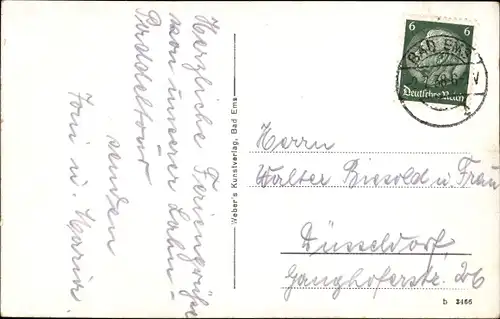 Herzliche Feriengrüße
von unserer Lahn-
Paddeltour
senden
Toni u. Maria.
Weber's Kunstverlag, Bad Ems
6 6
Deutsches Reich
BAD EMS
Herrn
Walter Biesold u. Frau
Düsseldorf
Ganghoferstr. 26
b 3466